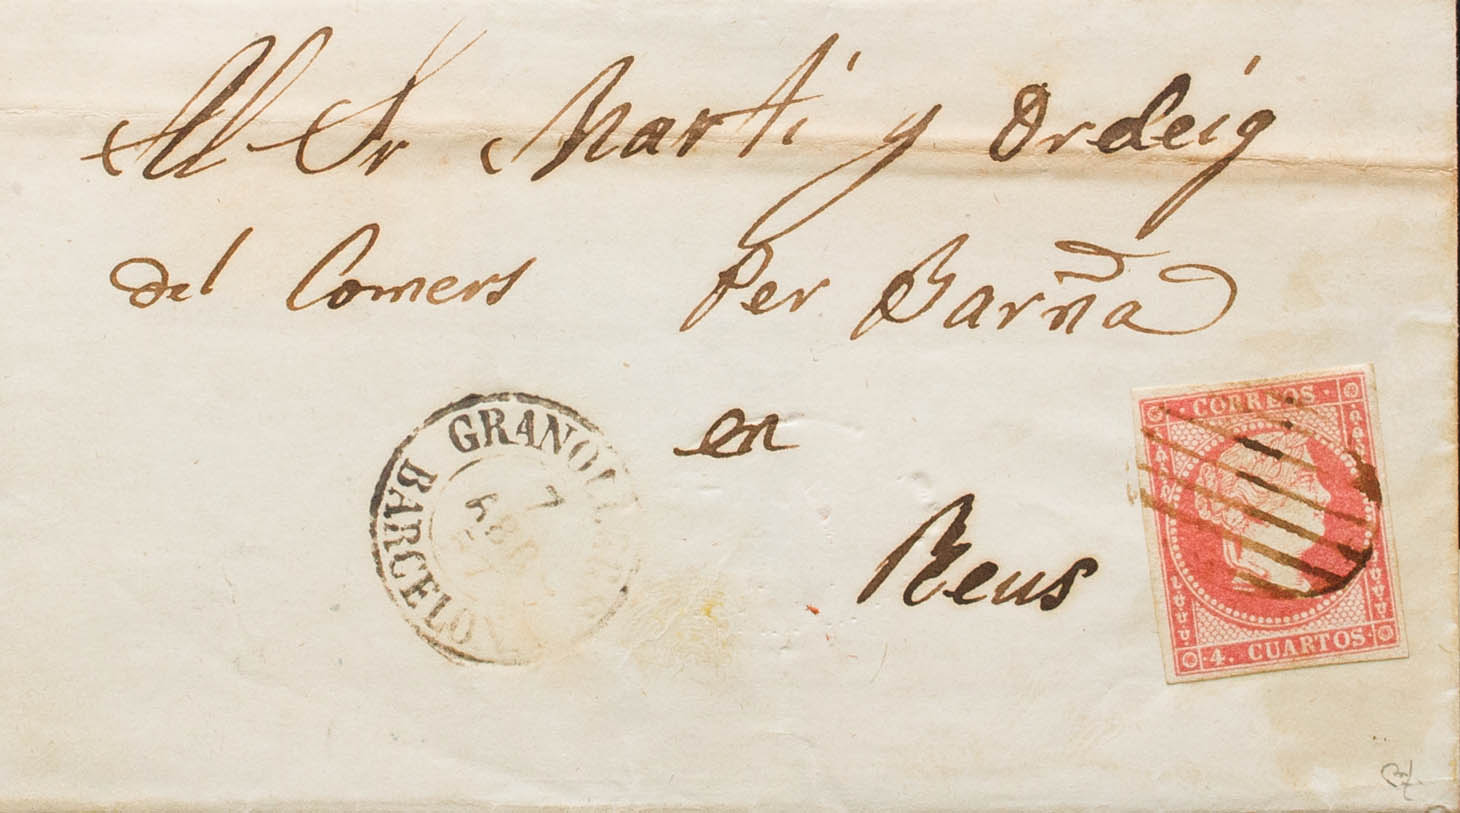 Al Sr Marti y Ordeig
del Comers Per Barña
en
Reus
GRANOLL
BARCELO
7
CORREOS
4. CUARTOS